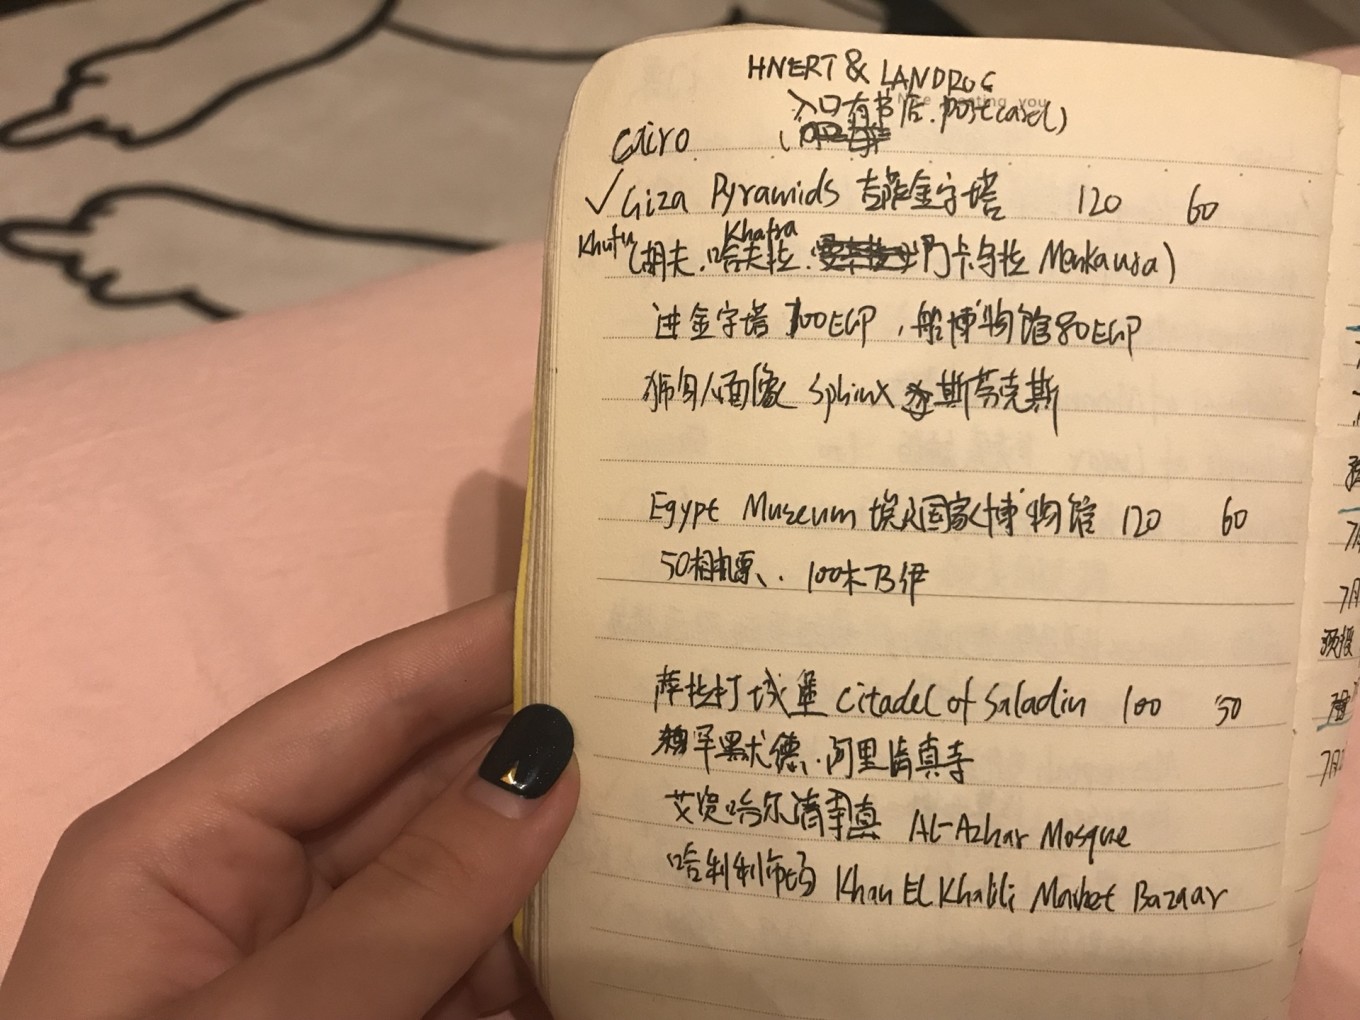 HNERT & LANDROC
入口有书店.postcard)
Cairo
✓Giza Pyramids 吉萨金字塔 120 60
Khufu Khafra
(胡夫.哈夫拉.门卡乌拉 Menkaura)
进金字塔 100EGP,船博物馆80EGP
狮身人面像 Sphinx 斯芬克斯
Egypt Museum 埃及国家博物馆 120 60
50相机票、. 100木乃伊
萨拉丁城堡 Citadel of Saladin 100 50
穆罕默德.阿里清真寺
艾资哈尔清真寺 Al-Azhar Mosque
哈利利市场 Khan El Khalili Market Bazaar
7月